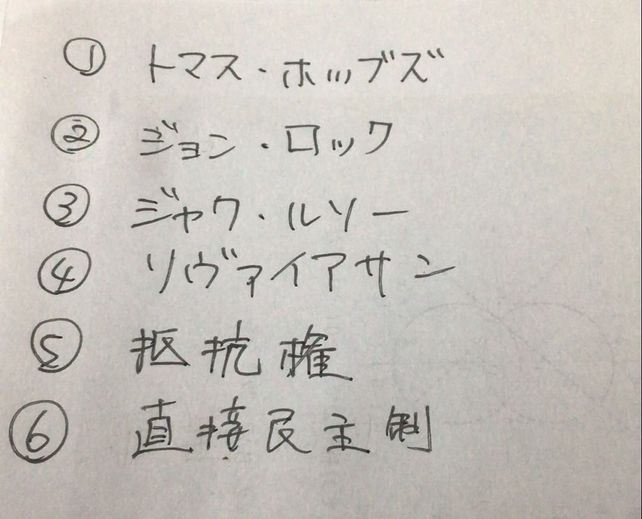 ① トマス・ホッブズ
② ジョン・ロック
③ ジャク・ルソー
④ リヴァイアサン
⑤ 抵抗権
⑥ 直接民主制